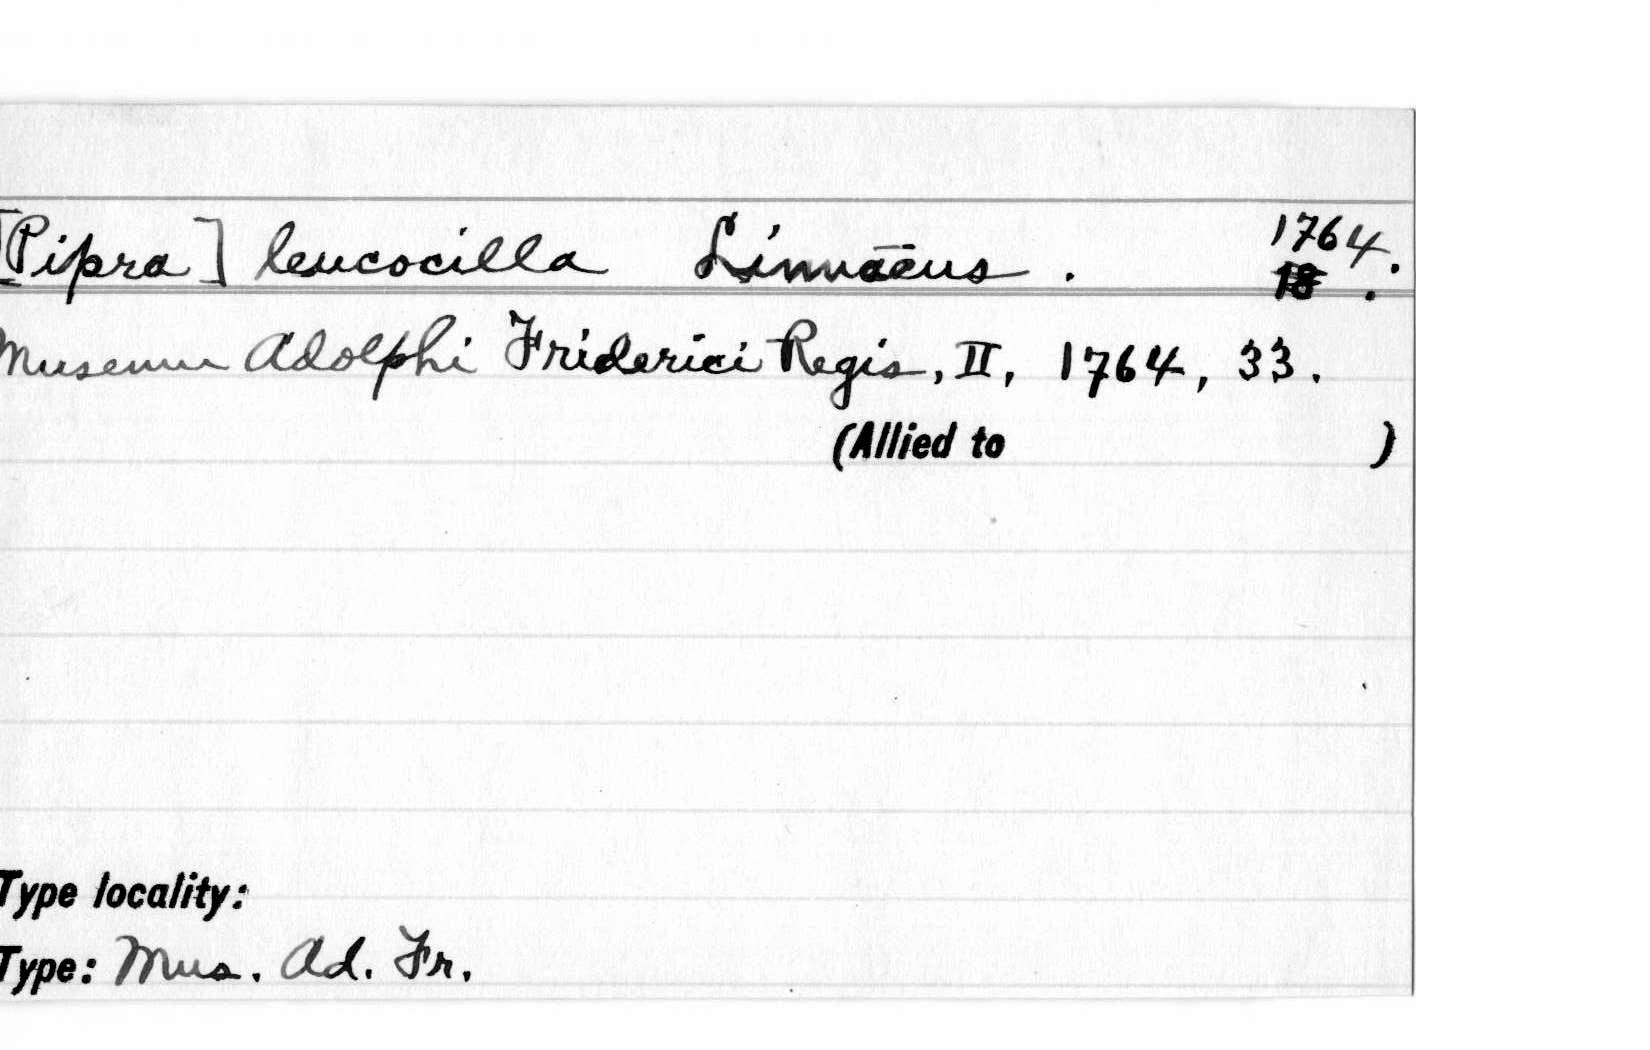 [Pipra] leucocilla Linnaeus. 1764.
18 .
Museum Adolphi Friderici Regis, II, 1764, 33.
(Allied to )
Type locality:
Type: Mus. Ad. Fr.